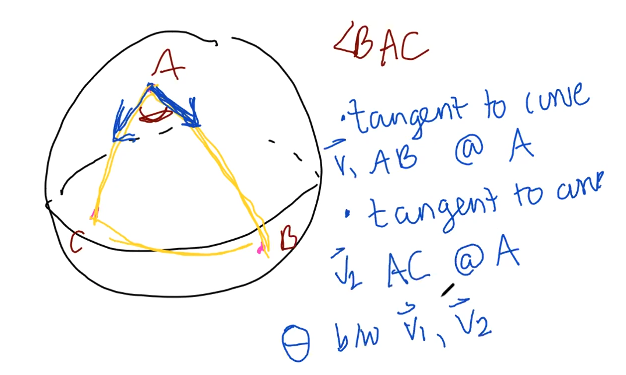 A
C
B
∠BAC
· tangent to curve
v⃗₁ AB @ A
· tangent to curve
v⃗₂ AC @ A
θ b/w v⃗₁, v⃗₂